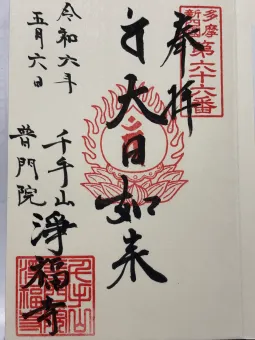 多摩
新四国
第六十六番
奉拝
大日如来
令和六年
五月六日
千手山
普門院
淨福寺